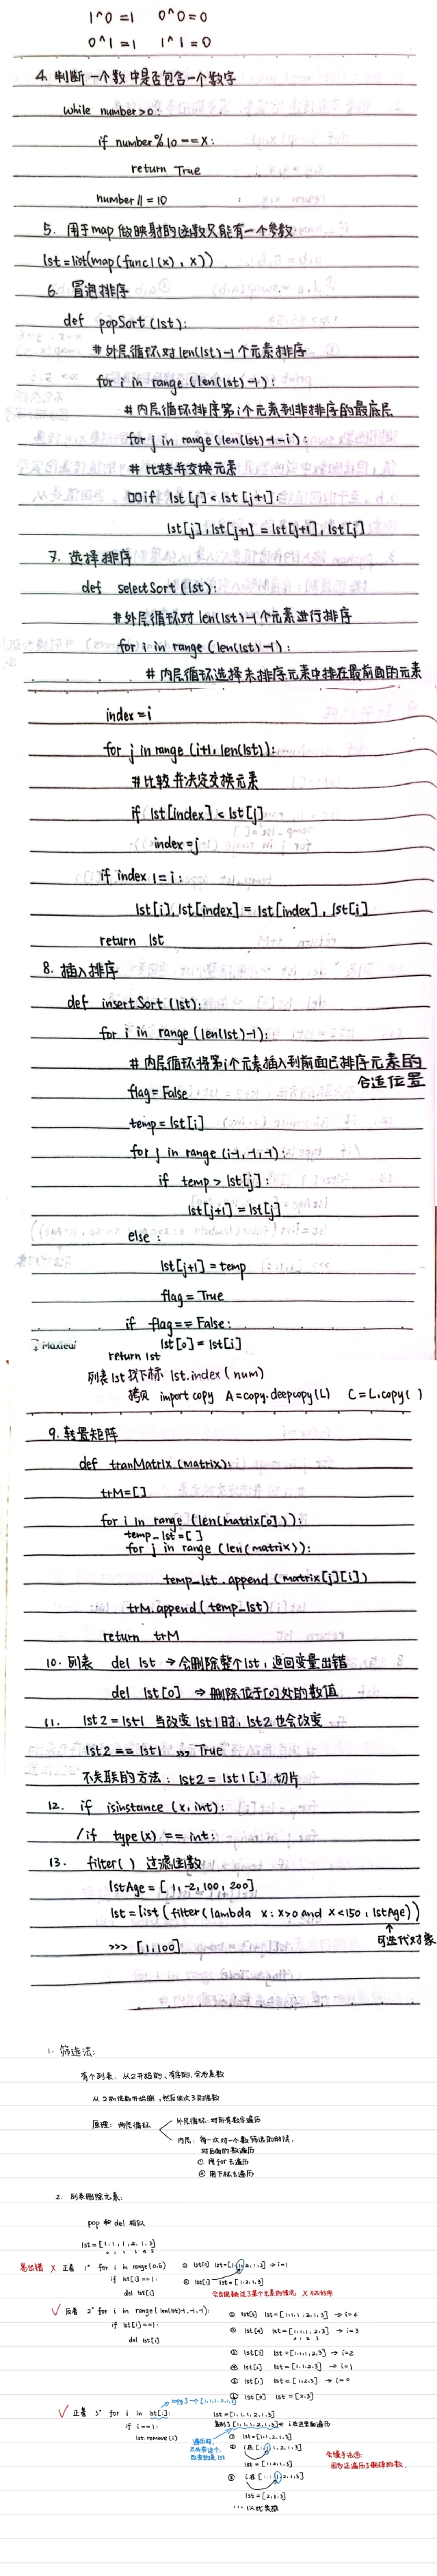 1^0 =1   0^0=0
0^1=1   1^1=0
4. 判断一个数中是否包含一个数字
while number>0:
if number%10==X:
return True
number//=10
5. 用于map做映射的函数只能有一个参数
lst=list(map(func1(x), x))
6. 冒泡排序
def popSort(lst):
#外层循环对len(lst)-1个元素排序
for i in range(len(lst)-1):
#内层循环排序第i个元素到非排序的最底层
for j in range(len(lst)-1-i):
# 比较并交换元素
□□if lst[j]<lst[j+1]:
lst[j],lst[j+1]=lst[j+1],lst[j]
7. 选择排序
def selectSort(lst):
#外层循环对len(lst)-1个元素进行排序
for i in range(len(lst)-1):
#内层循环选择未排序元素中排在最前面的元素
index=i
for j in range(i+1,len(lst)):
#比较并决定交换元素
if lst[index]<lst[j]
index=j
if index!=i:
lst[i],lst[index]=lst[index],lst[i]
return lst
8. 插入排序
def insertSort(lst):
for i in range(len(lst)-1):
#内层循环将第i个元素插入到前面已排序元素的
合适位置
flag=False
temp=lst[i]
for j in range(i-1,-1,-1):
if temp>lst[j]:
lst[j+1]=lst[j]
else:
lst[j+1]=temp
flag=True
if flag==False:
Maxleaf
lst[0]=lst[i]
return lst
列表lst找下标 lst.index(num)
拷贝 import copy A=copy.deepcopy(L) C=L.copy()
9. 转置矩阵
def tranMatrix(matrix):
trM=[]
for i in range(len(matrix[0])):
temp_lst=[]
for j in range(len(matrix)):
temp_lst.append(matrix[j][i])
trM.append(temp_lst)
return trM
10. 列表 del lst → 会删除整个lst,返回变量出错
del lst[0] ⇒ 删除位于[0]处的数值
11. lst2=lst1 当改变lst1时,lst2也会改变
lst2==lst1 >>> True
不关联的方法: lst2=lst1[:] 切片
12. if isinstance(x,int):
/if type(x)==int:
13. filter() 过滤函数
lstAge=[1,-2,100,200]
lst=list(filter(lambda x:x>0 and x<150,lstAge))
↑
可迭代对象
>>> [1,100]
1. 筛选法:
有个列表: 从2开始的、有序的、全为素数
从2的倍数开始删,然后依次3的倍数
原理: 两层循环
外层循环: 对所有数字遍历
内层: 每一次对一个数筛选的时候,
对后面的数遍历
① 用for去遍历
② 用下标去遍历
2. 列表删除元素:
pop 和 del 相似
lst=[1,1,1,2,1,3]
易出错 X 正着 1° for i in range(0,6)
if lst[i]==1:
del lst[i]
会出现跳过了某个元素的情况
√ 反着 2° for i in range(len(lst)-1,-1,-1):
if lst[i]==1:
del lst[i]
① lst[5] lst=[1,1,1,2,1,3] → i=4
② lst[4] lst=[1,1,1,2,3] → i=3
③ lst[3] lst=[1,1,1,2,3] → i=2
④ lst[2] lst=[1,1,2,3] → i=1
⑤ lst[1] lst=[1,2,3] → i=0
⑥ lst[0] lst=[2,3]
copy了一个[1,1,1,2,1,3]
√ 正着 3° for i in lst[:]:
if i==1:
lst.remove(i)
lst=[1,1,1,2,1,3]
复制了[1,1,1,2,1,3] ← i在这里面遍历
① lst=[1,1,2,1,3]
② i在[1,1,1,2,1,3]
lst=[1,2,1,3]
③ i在[1,1,1,2,1,3]
lst=[2,1,3]
··· 以此类推